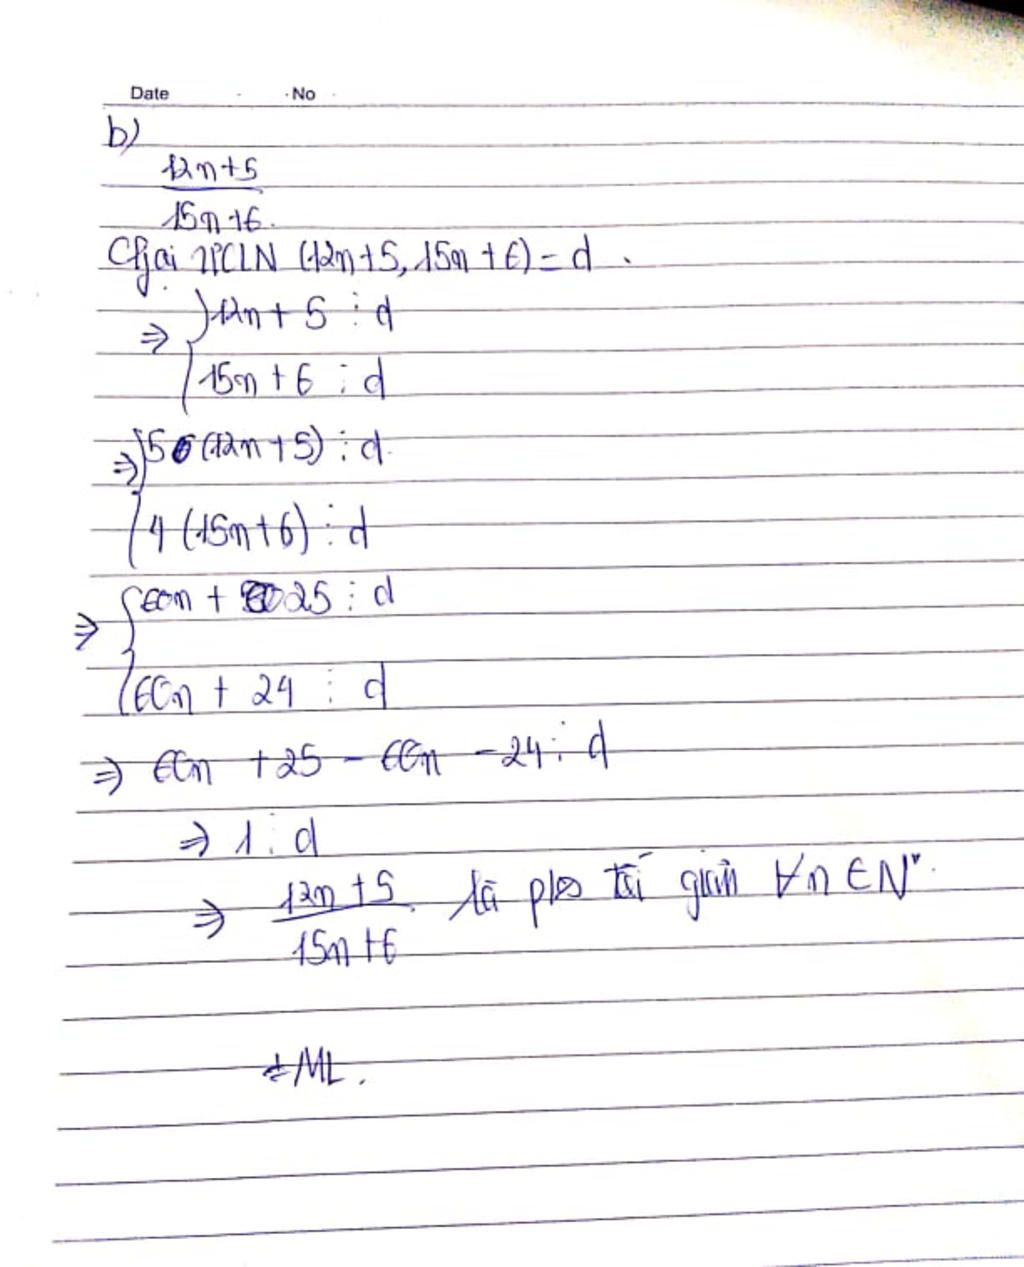 Date No
b)
12n+5
15n+6.
Gọi ƯCLN (12n+5, 15n+6) = d.
⇒ { 12n + 5 ⋮ d
15n + 6 ⋮ d
⇒ { 5 (12n+5) ⋮ d
4 (15n+6) ⋮ d
⇒ { 60n + 25 ⋮ d
60n + 24 ⋮ d
⇒ 60n + 25 - 60n - 24 ⋮ d
⇒ 1 ⋮ d
⇒ 12n+5 là p/s tối giản ∀n∈N*.
15n+6